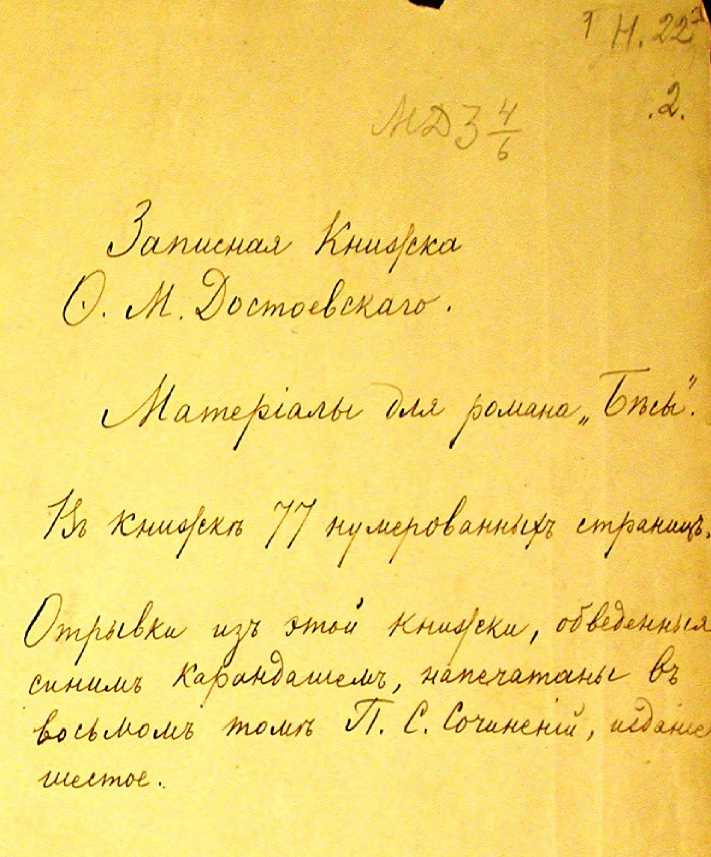 Н. 22
.2.
МД З 4/6
Записная Книжка
Ѳ. М. Достоевскаго.
Матеріалы для романа „Бѣсы".
Въ книжкѣ 77 нумерованныхъ страницъ.
Отрывки изъ этой книжки, обведенныя
синимъ карандашемъ, напечатаны въ
восьмомъ томѣ П. С. Сочиненій, изданіе
шестое.